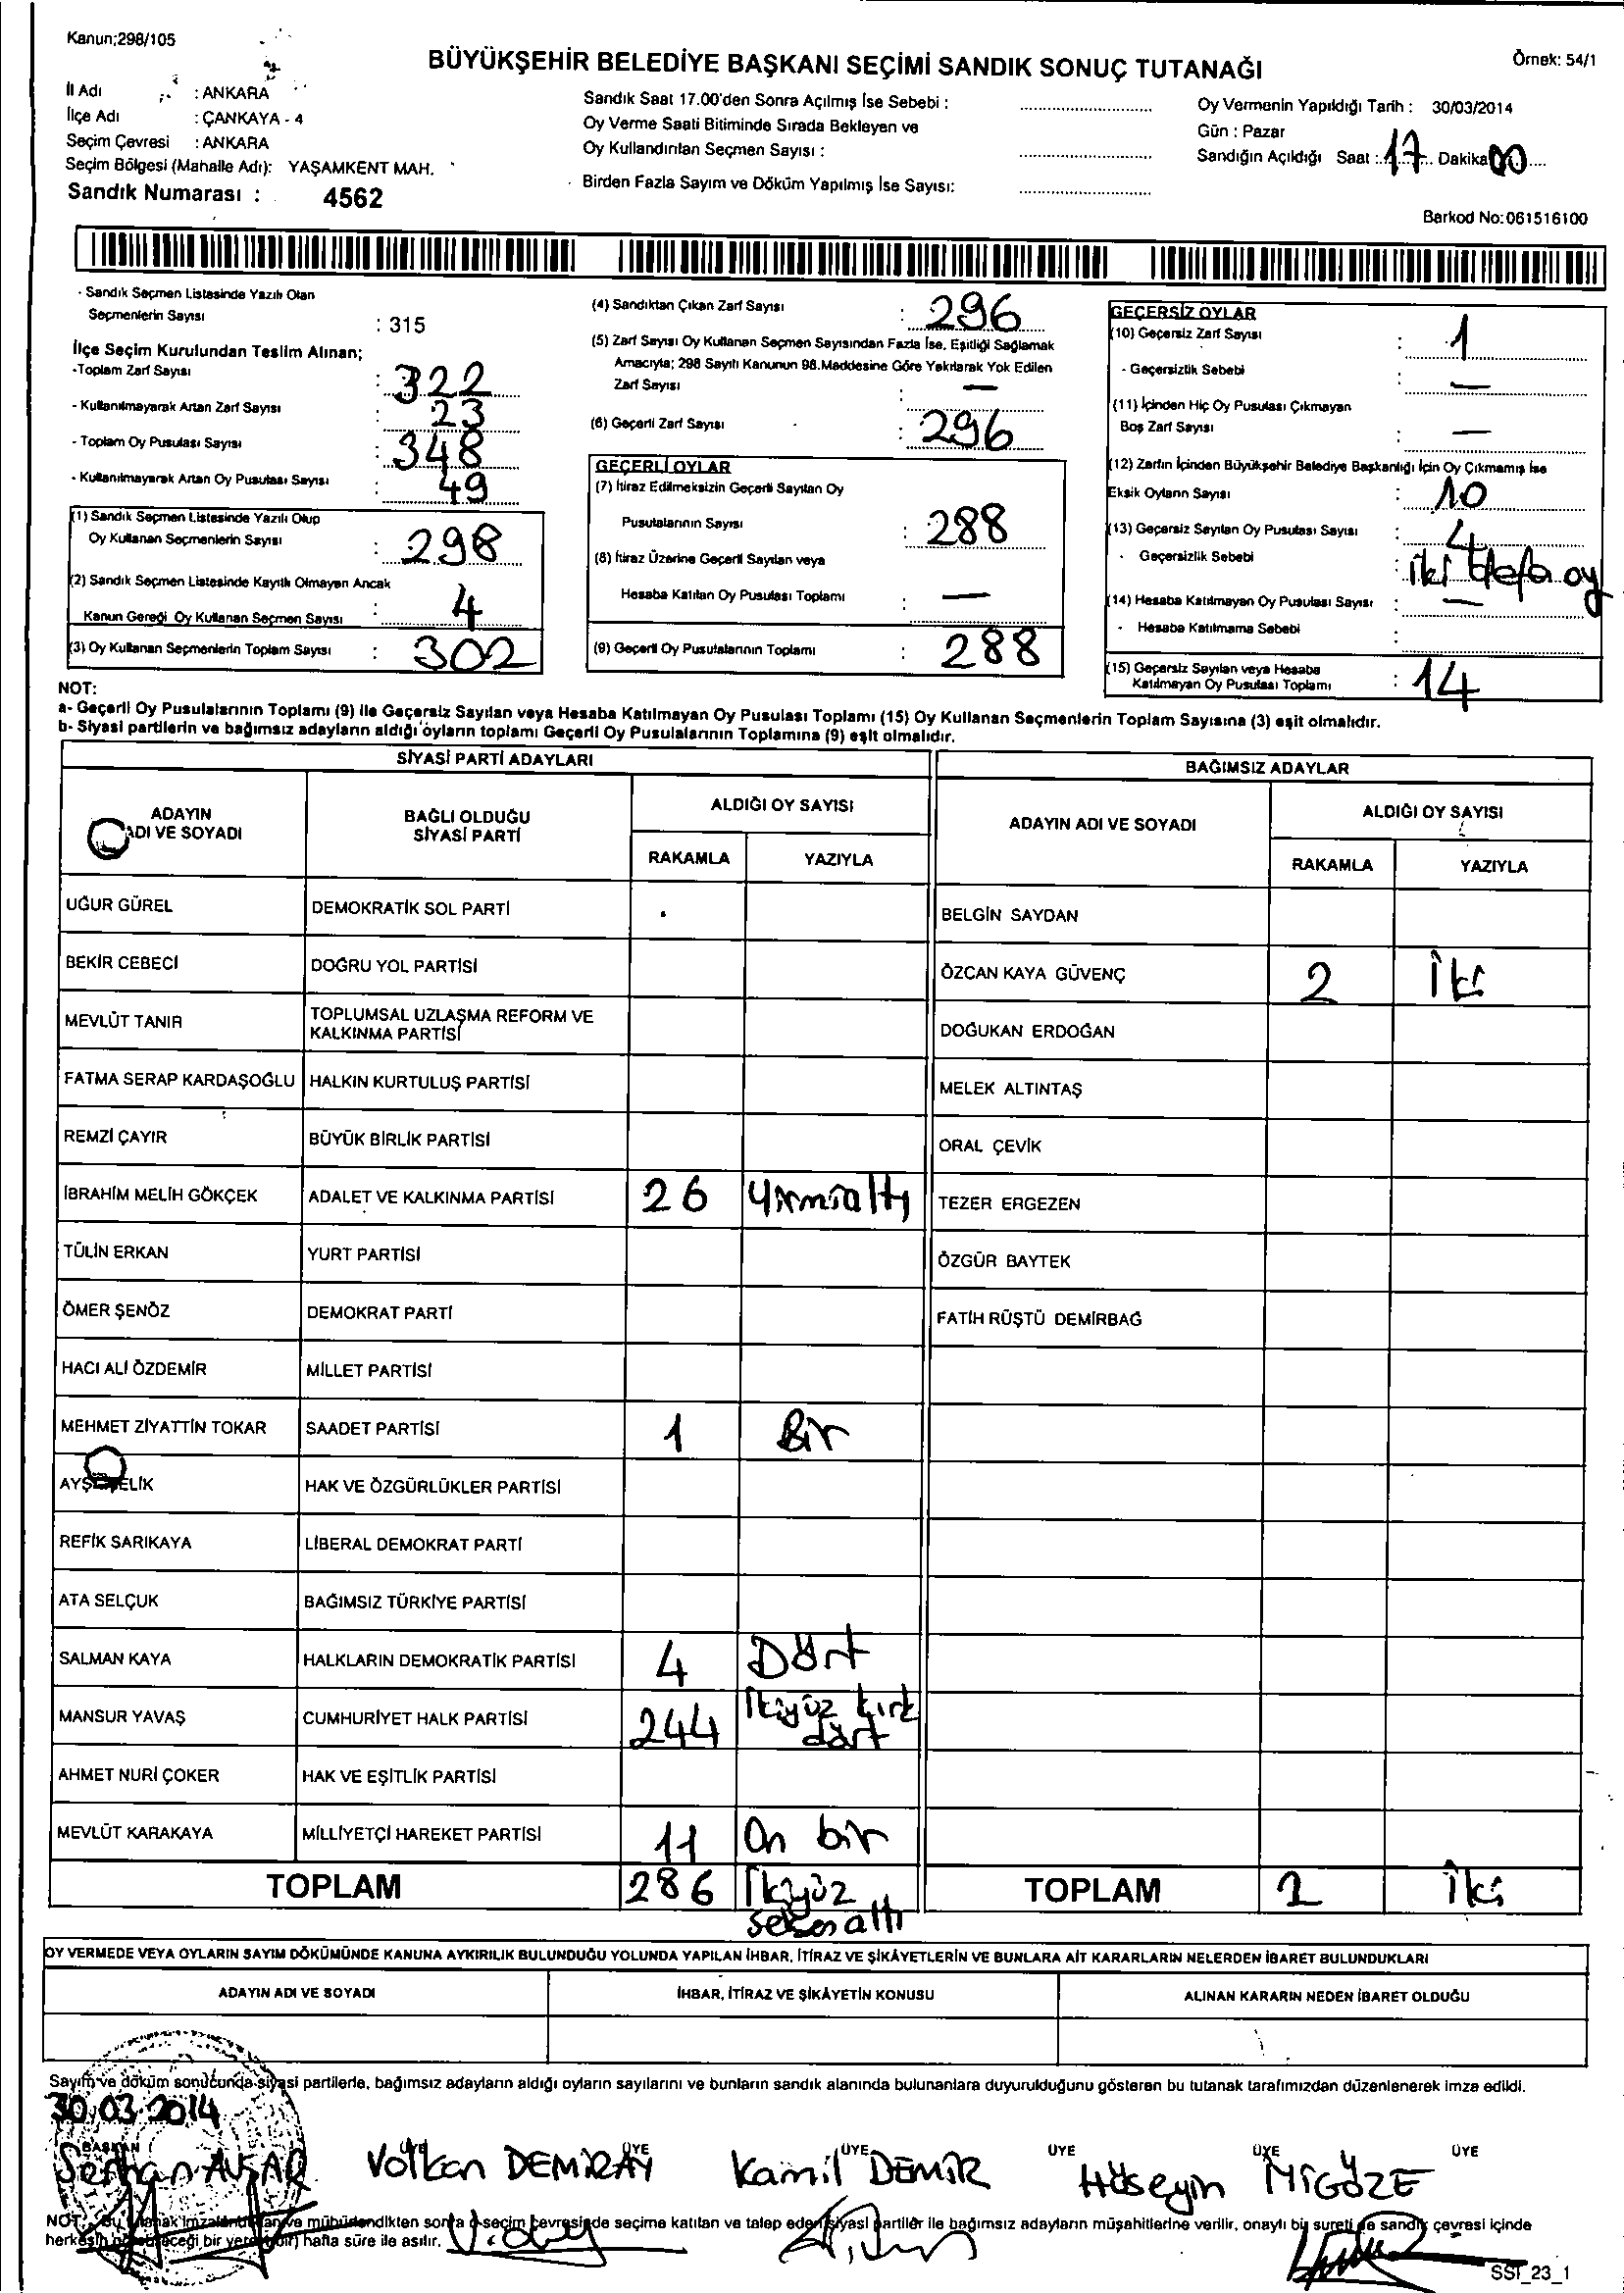 Kanun;298/105
BÜYÜKŞEHİR BELEDİYE BAŞKANI SEÇİMİ SANDIK SONUÇ TUTANAĞI
Örnek: 54/1
İl Adı : ANKARA
İlçe Adı : ÇANKAYA - 4
Seçim Çevresi : ANKARA
Seçim Bölgesi (Mahalle Adı): YAŞAMKENT MAH.
Sandık Numarası : 4562
Sandık Saat 17.00'den Sonra Açılmış İse Sebebi :
Oy Verme Saati Bitiminde Sırada Bekleyen ve
Oy Kullandırılan Seçmen Sayısı :
Birden Fazla Sayım ve Döküm Yapılmış İse Sayısı:
Oy Vermenin Yapıldığı Tarih : 30/03/2014
Gün : Pazar
Sandığın Açıldığı Saat : 17 Dakika 00
Barkod No:061516100
- Sandık Seçmen Listesinde Yazılı Olan
Seçmenlerin Sayısı : 315
İlçe Seçim Kurulundan Teslim Alınan;
-Toplam Zarf Sayısı : 322
- Kullanılmayarak Artan Zarf Sayısı : 23
- Toplam Oy Pusulası Sayısı : 348
- Kullanılmayarak Artan Oy Pusulası Sayısı : 49
(1) Sandık Seçmen Listesinde Yazılı Olup
Oy Kullanan Seçmenlerin Sayısı : 298
(2) Sandık Seçmen Listesinde Kayıtlı Olmayan Ancak
Kanun Gereği Oy Kullanan Seçmen Sayısı : 4
(3) Oy Kullanan Seçmenlerin Toplam Sayısı : 302
(4) Sandıktan Çıkan Zarf Sayısı : 296
(5) Zarf Sayısı Oy Kullanan Seçmen Sayısından Fazla İse, Eşitliği Sağlamak
Amacıyla; 298 Sayılı Kanunun 98.Maddesine Göre Yakılarak Yok Edilen
Zarf Sayısı : —
(6) Geçerli Zarf Sayısı : 296
GEÇERLİ OYLAR
(7) İtiraz Edilmeksizin Geçerli Sayılan Oy
Pusulalarının Sayısı : 288
(8) İtiraz Üzerine Geçerli Sayılan veya
Hesaba Katılan Oy Pusulası Toplamı : —
(9) Geçerli Oy Pusulalarının Toplamı : 288
GEÇERSİZ OYLAR
(10) Geçersiz Zarf Sayısı : 1
- Geçersizlik Sebebi : —
(11) İçinden Hiç Oy Pusulası Çıkmayan
Boş Zarf Sayısı : —
(12) Zarfın İçinden Büyükşehir Belediye Başkanlığı İçin Oy Çıkmamış İse
Eksik Oyların Sayısı : 10
(13) Geçersiz Sayılan Oy Pusulası Sayısı : 4
- Geçersizlik Sebebi : iki defa oy
(14) Hesaba Katılmayan Oy Pusulası Sayısı : —
- Hesaba Katılmama Sebebi :
(15) Geçersiz Sayılan veya Hesaba
Katılmayan Oy Pusulası Toplamı : 14
NOT:
a- Geçerli Oy Pusulalarının Toplamı (9) ile Geçersiz Sayılan veya Hesaba Katılmayan Oy Pusulası Toplamı (15) Oy Kullanan Seçmenlerin Toplam Sayısına (3) eşit olmalıdır.
b- Siyasi partilerin ve bağımsız adayların aldığı oyların toplamı Geçerli Oy Pusulalarının Toplamına (9) eşit olmalıdır.
SİYASİ PARTİ ADAYLARI
BAĞIMSIZ ADAYLAR
ADAYIN ADI VE SOYADI
BAĞLI OLDUĞU SİYASİ PARTİ
ALDIĞI OY SAYISI
RAKAMLA YAZIYLA
ADAYIN ADI VE SOYADI
ALDIĞI OY SAYISI
RAKAMLA YAZIYLA
UĞUR GÜREL DEMOKRATİK SOL PARTİ BELGİN SAYDAN
BEKİR CEBECİ DOĞRU YOL PARTİSİ ÖZCAN KAYA GÜVENÇ 2 İki
MEVLÜT TANIR TOPLUMSAL UZLAŞMA REFORM VE KALKINMA PARTİSİ DOĞUKAN ERDOĞAN
FATMA SERAP KARDAŞOĞLU HALKIN KURTULUŞ PARTİSİ MELEK ALTINTAŞ
REMZİ ÇAYIR BÜYÜK BİRLİK PARTİSİ ORAL ÇEVİK
İBRAHİM MELİH GÖKÇEK ADALET VE KALKINMA PARTİSİ 26 yirmialtı TEZER ERGEZEN
TÜLİN ERKAN YURT PARTİSİ ÖZGÜR BAYTEK
ÖMER ŞENÖZ DEMOKRAT PARTİ FATİH RÜŞTÜ DEMİRBAĞ
HACI ALİ ÖZDEMİR MİLLET PARTİSİ
MEHMET ZİYATTİN TOKAR SAADET PARTİSİ 1 Bir
HAK VE ÖZGÜRLÜKLER PARTİSİ
REFİK SARIKAYA LİBERAL DEMOKRAT PARTİ
ATA SELÇUK BAĞIMSIZ TÜRKİYE PARTİSİ
SALMAN KAYA HALKLARIN DEMOKRATİK PARTİSİ 4 Dört
MANSUR YAVAŞ CUMHURİYET HALK PARTİSİ 244 İkiyüz kırk dört
AHMET NURİ ÇOKER HAK VE EŞİTLİK PARTİSİ
MEVLÜT KARAKAYA MİLLİYETÇİ HAREKET PARTİSİ 11 On bir
TOPLAM 286 İkiyüz seksenaltı TOPLAM 2 İki
OY VERMEDE VEYA OYLARIN SAYIM DÖKÜMÜNDE KANUNA AYKIRILIK BULUNDUĞU YOLUNDA YAPILAN İHBAR, İTİRAZ VE ŞİKÂYETLERİN VE BUNLARA AİT KARARLARIN NELERDEN İBARET BULUNDUKLARI
ADAYIN ADI VE SOYADI İHBAR, İTİRAZ VE ŞİKÂYETİN KONUSU ALINAN KARARIN NEDEN İBARET OLDUĞU
Sayım ve döküm sonucunda siyasi partilerle, bağımsız adayların aldığı oyların sayılarını ve bunların sandık alanında bulunanlara duyurulduğunu gösteren bu tutanak tarafımızdan düzenlenerek imza edildi.
30.03.2014
BAŞKAN ÜYE ÜYE ÜYE ÜYE ÜYE ÜYE
Serhan AVŞAR Volkan DEMİRAY Kamil DEMİR Hüseyin MİGÖZE
NOT: Bu tutanak imzalandıktan ve mühürlendikten sonra o seçim çevresinde seçime katılan ve talep eden siyasi partiler ile bağımsız adayların müşahitlerine verilir, onaylı bir sureti de sandık çevresi içinde
herkesin görebileceği bir yere (bir) hafta süre ile asılır.
SST_23_1